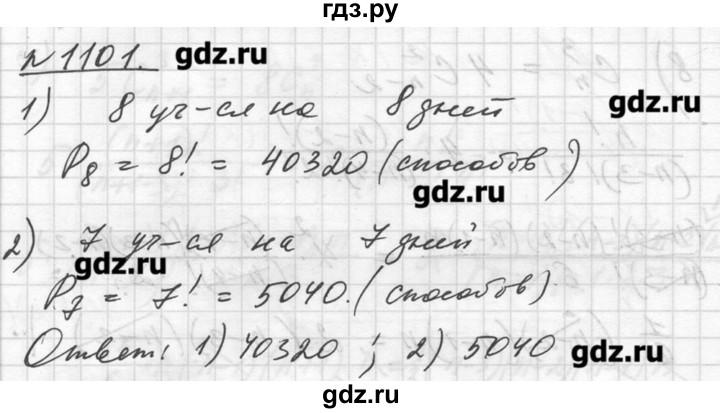 гдз.ру
№1101. gdz.ru
1) 8 уч-ся на 8 дней gdz.ru
P8 = 8! = 40320 (способов)
gdz.ru
2) 7 уч-ся на 7 дней
gdz.ru
P7 = 7! = 5040. (способов)
Ответ: 1) 40320 ; 2) 5040 gdz.ru
gdz.ru